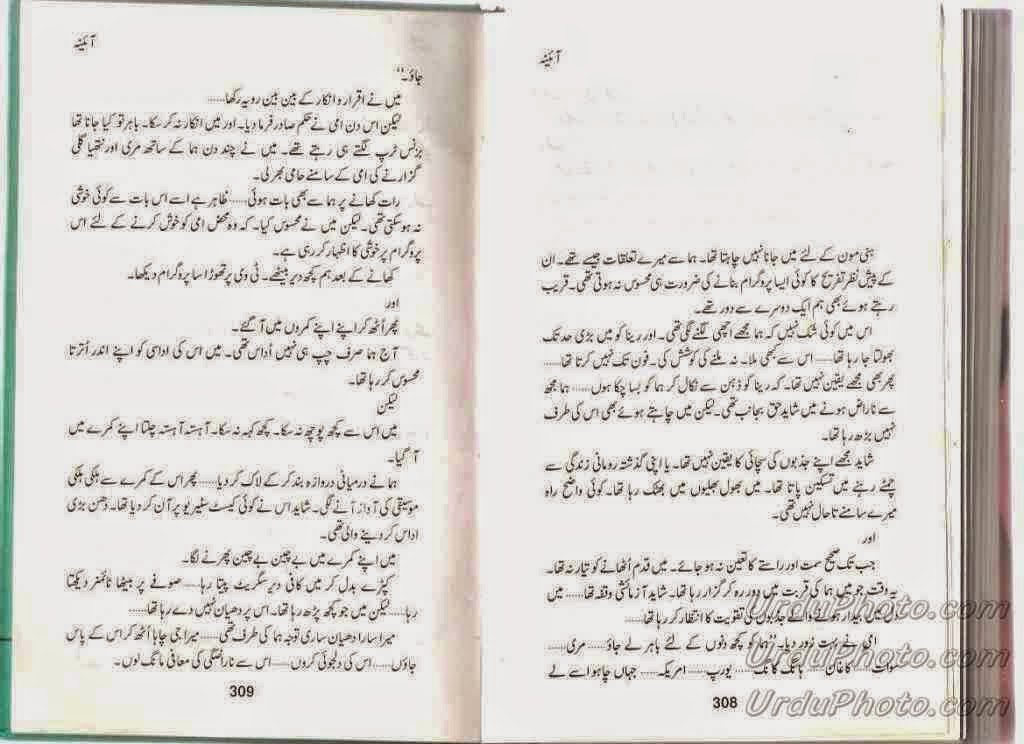 آئینہ
ہنی مون کے لئے میں جانا نہیں چاہتا تھا۔ ہما سے میرے تعلقات جیسے تھے۔ ان
کے پیش نظر تفریح کا کوئی ایسا پروگرام بنانے کی ضرورت ہی محسوس نہ ہوتی تھی۔ قریب
رہتے ہوئے بھی ہم ایک دوسرے سے دور تھے۔
اس میں کوئی شک نہیں کہ ہما مجھے اچھی لگنے لگی تھی۔ اور رینا کو میں بڑی حد تک
بھولتا جا رہا تھا...... اس سے کبھی ملا۔ نہ ملنے کی کوشش کی۔ فون تک نہیں کرتا تھا......
پھر بھی مجھے یقین نہیں تھا۔ کہ رینا کو ذہن سے نکال کر ہما کو بسا چکا ہوں...... ہما مجھ
سے ناراض ہونے میں شاید حق بجانب تھی۔ لیکن میں چاہتے ہوئے بھی اس کی طرف
نہیں بڑھ رہا تھا۔
شاید مجھے اپنے جذبوں کی سچائی کا یقین نہیں تھا۔ یا اپنی گذشتہ رومانی زندگی سے
چمٹے رہنے میں تسکین پاتا تھا۔ میں بھول بھلیوں میں بھٹک رہا تھا۔ کوئی واضح راہ
میرے سامنے تا حال نہیں تھی۔
اور
جب تک صحیح سمت اور راستے کا تعین نہ ہو جائے۔ میں قدم اُٹھانے کو تیار نہ تھا۔
یہ وقت جو میں ہما کی قربت میں دور رہ کر گزار رہا تھا۔ شاید آزمائشی وقفہ تھا...... میں
دل میں بیدار ہونے والے جذبوں کی تقویت کا انتظار کر رہا تھا......
امی نے بہت زور دیا۔ ”ہما کو کچھ دنوں کے لئے باہر لے جاؤ...... مری......
سوات...... کاغان...... ہانگ کانگ...... یورپ...... امریکہ...... جہاں چاہو اسے لے
308
آئینہ
جاؤ۔“
میں نے اقرار و انکار کے بین بین رویہ رکھا......
لیکن اس دن امی نے حکم صادر فرما دیا۔ اور میں انکار نہ کر سکا۔ باہر تو کیا جانا تھا
بزنس ٹرپ لگتے ہی رہتے تھے۔ میں نے چند دن ہما کے ساتھ مری اور نتھیا گلی
گزارنے کی امی کے سامنے حامی بھر لی۔
رات کھانے پر ہما سے بھی بات ہوئی...... ظاہر ہے اسے اس بات سے کوئی خوشی
نہ ہو سکتی تھی۔ لیکن میں نے محسوس کیا۔ کہ وہ محض امی کو خوش کرنے کے لئے اس
پروگرام پر خوشی کا اظہار کر رہی ہے۔
کھانے کے بعد ہم کچھ دیر بیٹھے۔ ٹی وی پر تھوڑا سا پروگرام دیکھا۔
اور
پھر اُٹھ کر اپنے اپنے کمروں میں آ گئے۔
آج ہما صرف چپ ہی نہیں اُداس تھی۔ میں اس کی اداسی کو اپنے اندر اُترتا
محسوس کر رہا تھا۔
لیکن
میں اس سے کچھ پوچھ نہ سکا۔ کچھ کہہ نہ سکا۔ آہستہ آہستہ چلتا اپنے کمرے میں
آ گیا۔
ہما نے درمیانی دروازہ بند کر کے لاک کر دیا...... پھر اس کے کمرے سے ہلکی ہلکی
موسیقی کی آواز آنے لگی۔ شاید اس نے کوئی کیسٹ سٹیریو پر آن کر دیا تھا۔ دھن بڑی
اداس کر دینے والی تھی۔
میں اپنے کمرے میں بے چین بے چین پھرنے لگا۔
کپڑے بدل کر میں کافی دیر سگریٹ پیتا رہا...... صوفے پر بیٹھا ٹائمز دیکھتا
رہا...... لیکن میں جو کچھ پڑھ رہا تھا۔ اس پر دھیان نہیں دے رہا تھا......
میرا سارا دھیان ساری توجہ ہما کی طرف تھی...... میرا جی چاہا اُٹھ کر اس کے پاس
جاؤں...... اس کی دلجوئی کروں...... اس سے ناراضگی کی معافی مانگ لوں۔
309
UrduPhoto.com
UrduPhoto.com
UrduPhoto.com